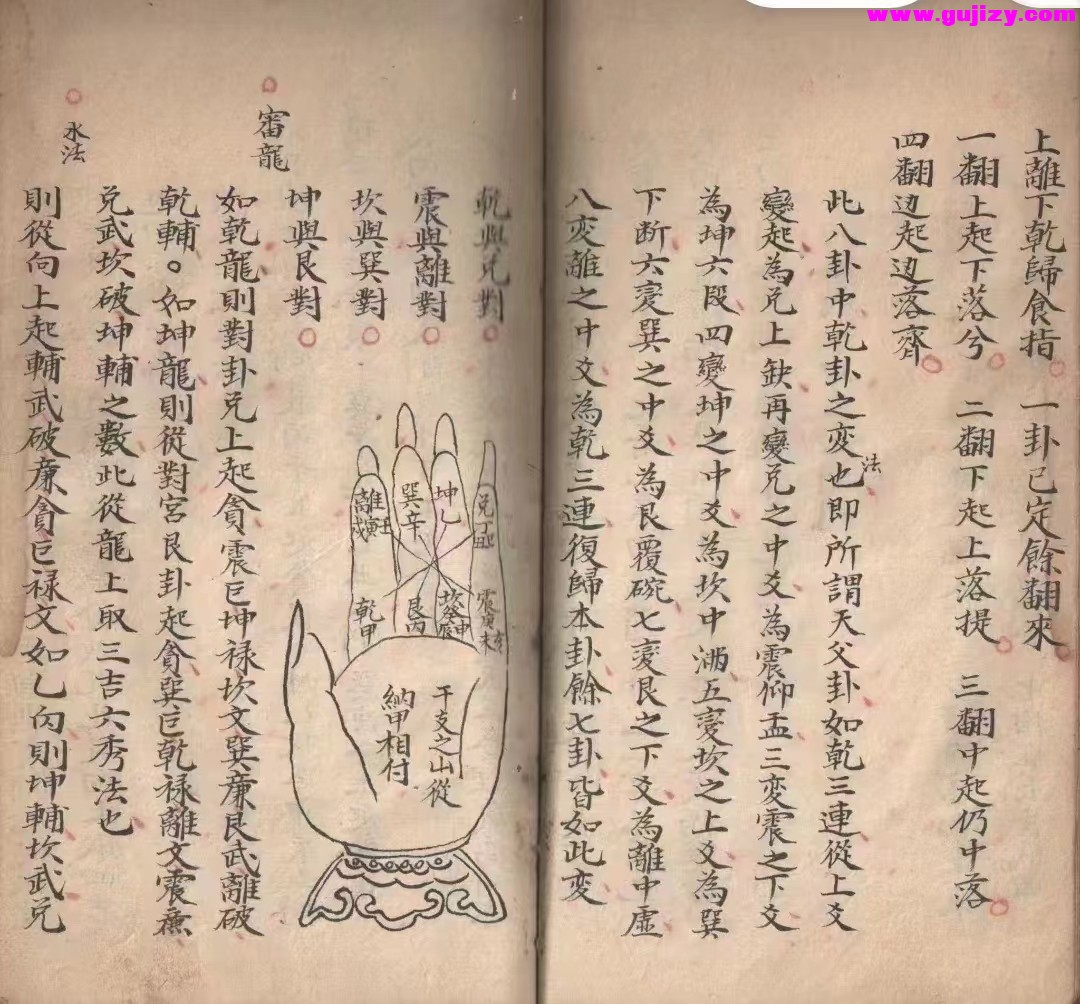 www.gujizy.com
上離下乾歸食指 一卦已定餘翻來
一翻上起下落兮 二翻下起上落提 三翻中起仍中落
四翻边起边落齊
此八卦中乾卦之变法也即所謂天父卦如乾三連從上爻
變起為兑上缺再變兑之中爻為震仰盂三变震之下爻
為坤六段四變坤之中爻為坎中满五变坎之上爻為巽
下断六变巽之中爻為艮覆碗七变艮之下爻為離中虚
八变離之中爻為乾三連復歸本卦餘七卦皆如此变
乾與兑對
震與離對
坎與巽對
坤與艮對
兑丁
坤乙
巽辛
離壬寅戌
震庚亥未
坎癸申辰
艮丙
乾甲
干支之山從
納甲相付
審龍
如乾龍則對卦兑上起貪震巨坤禄坎文巽廉艮武離破
乾輔。如坤龍則從對宮艮卦起貪巽巨乾禄離文震廉
兑武坎破坤輔之數此從龍上取三吉六秀法也
水法
則從向上起輔武破廉貪巨禄文如乙向則坤輔坎武兑